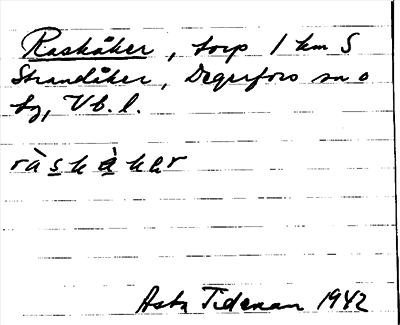 Raskåker, torp 1 km S
Strandåker, Degerfors sn o
by, Vb. l.
ràskàker
Asta Tideman 1942